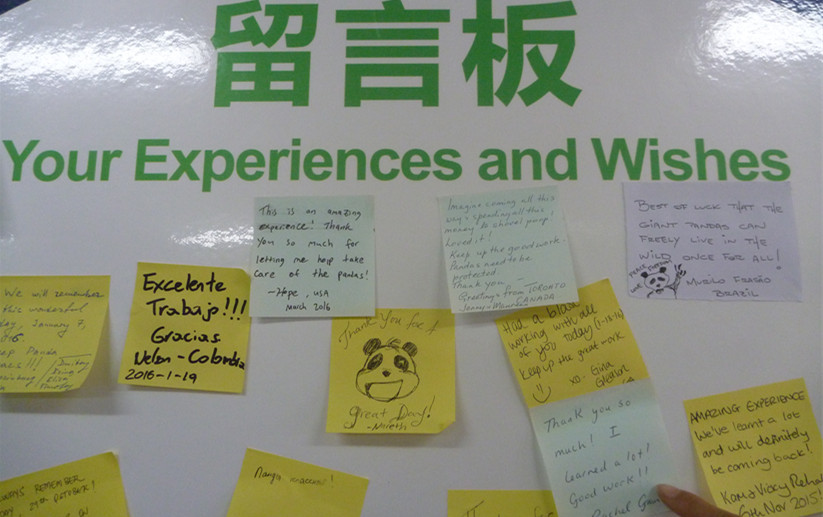 留言板
Your Experiences and Wishes
This is an amazing
experience! Thank
you so much for
letting me help take
care of the pandas!
- Hope, USA
March 2016
Imagine coming all this
way & spending all this
money to shovel poop!
Loved it!
Keep up the good work.
Pandas need to be
protected.
Thank you -
Greetings from TORONTO
CANADA
BEST OF LUCK THAT THE
GIANT PANDAS CAN
FREELY LIVE IN THE
WILD ONCE FOR ALL!
MURILO
BRAZIL
We will remember
this wonderful
day, January 7,
2016
Keep Panda
Excelente
Trabajo!!!
Gracias
Colombia
2016-1-19
Thank you for a
Great Day!
Had a blast
working with all
of you today (1-18-16)
Keep up the great work
xo- Gina
Thank you so
much! I
learned a lot!
Good work!!
Rachel
AMAZING EXPERIENCE
We've learnt a lot
and will definitely
be coming back!
6th Nov 2015!
ALWAYS REMEMBER